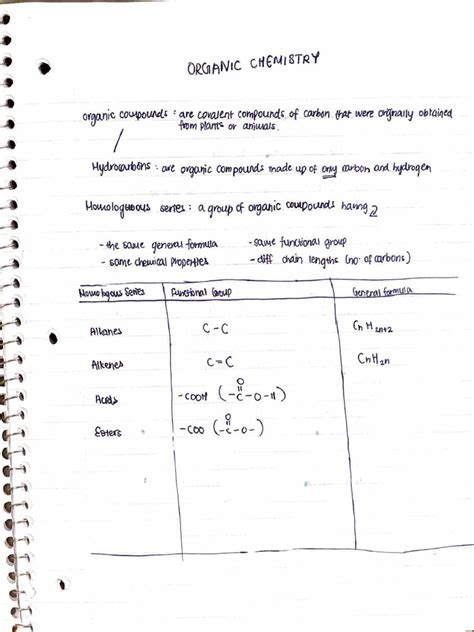 ORGANIC CHEMISTRY
organic compounds : are covalent compounds of carbon that were originally obtained
from plants or animals.
Hydrocarbons : are organic compounds made up of only carbon and hydrogen
Homologuous series : a group of organic compounds having
- the same general formula - same functional group
- same chemical properties - diff chain lengths (no. of carbons)
Homologous Series Functional Group General formula
Alkanes C - C CnH2n+2
Alkenes C = C CnH2n
O
Acids -COOH (-C-O-H)
O
Esters -COO (-C-O-)